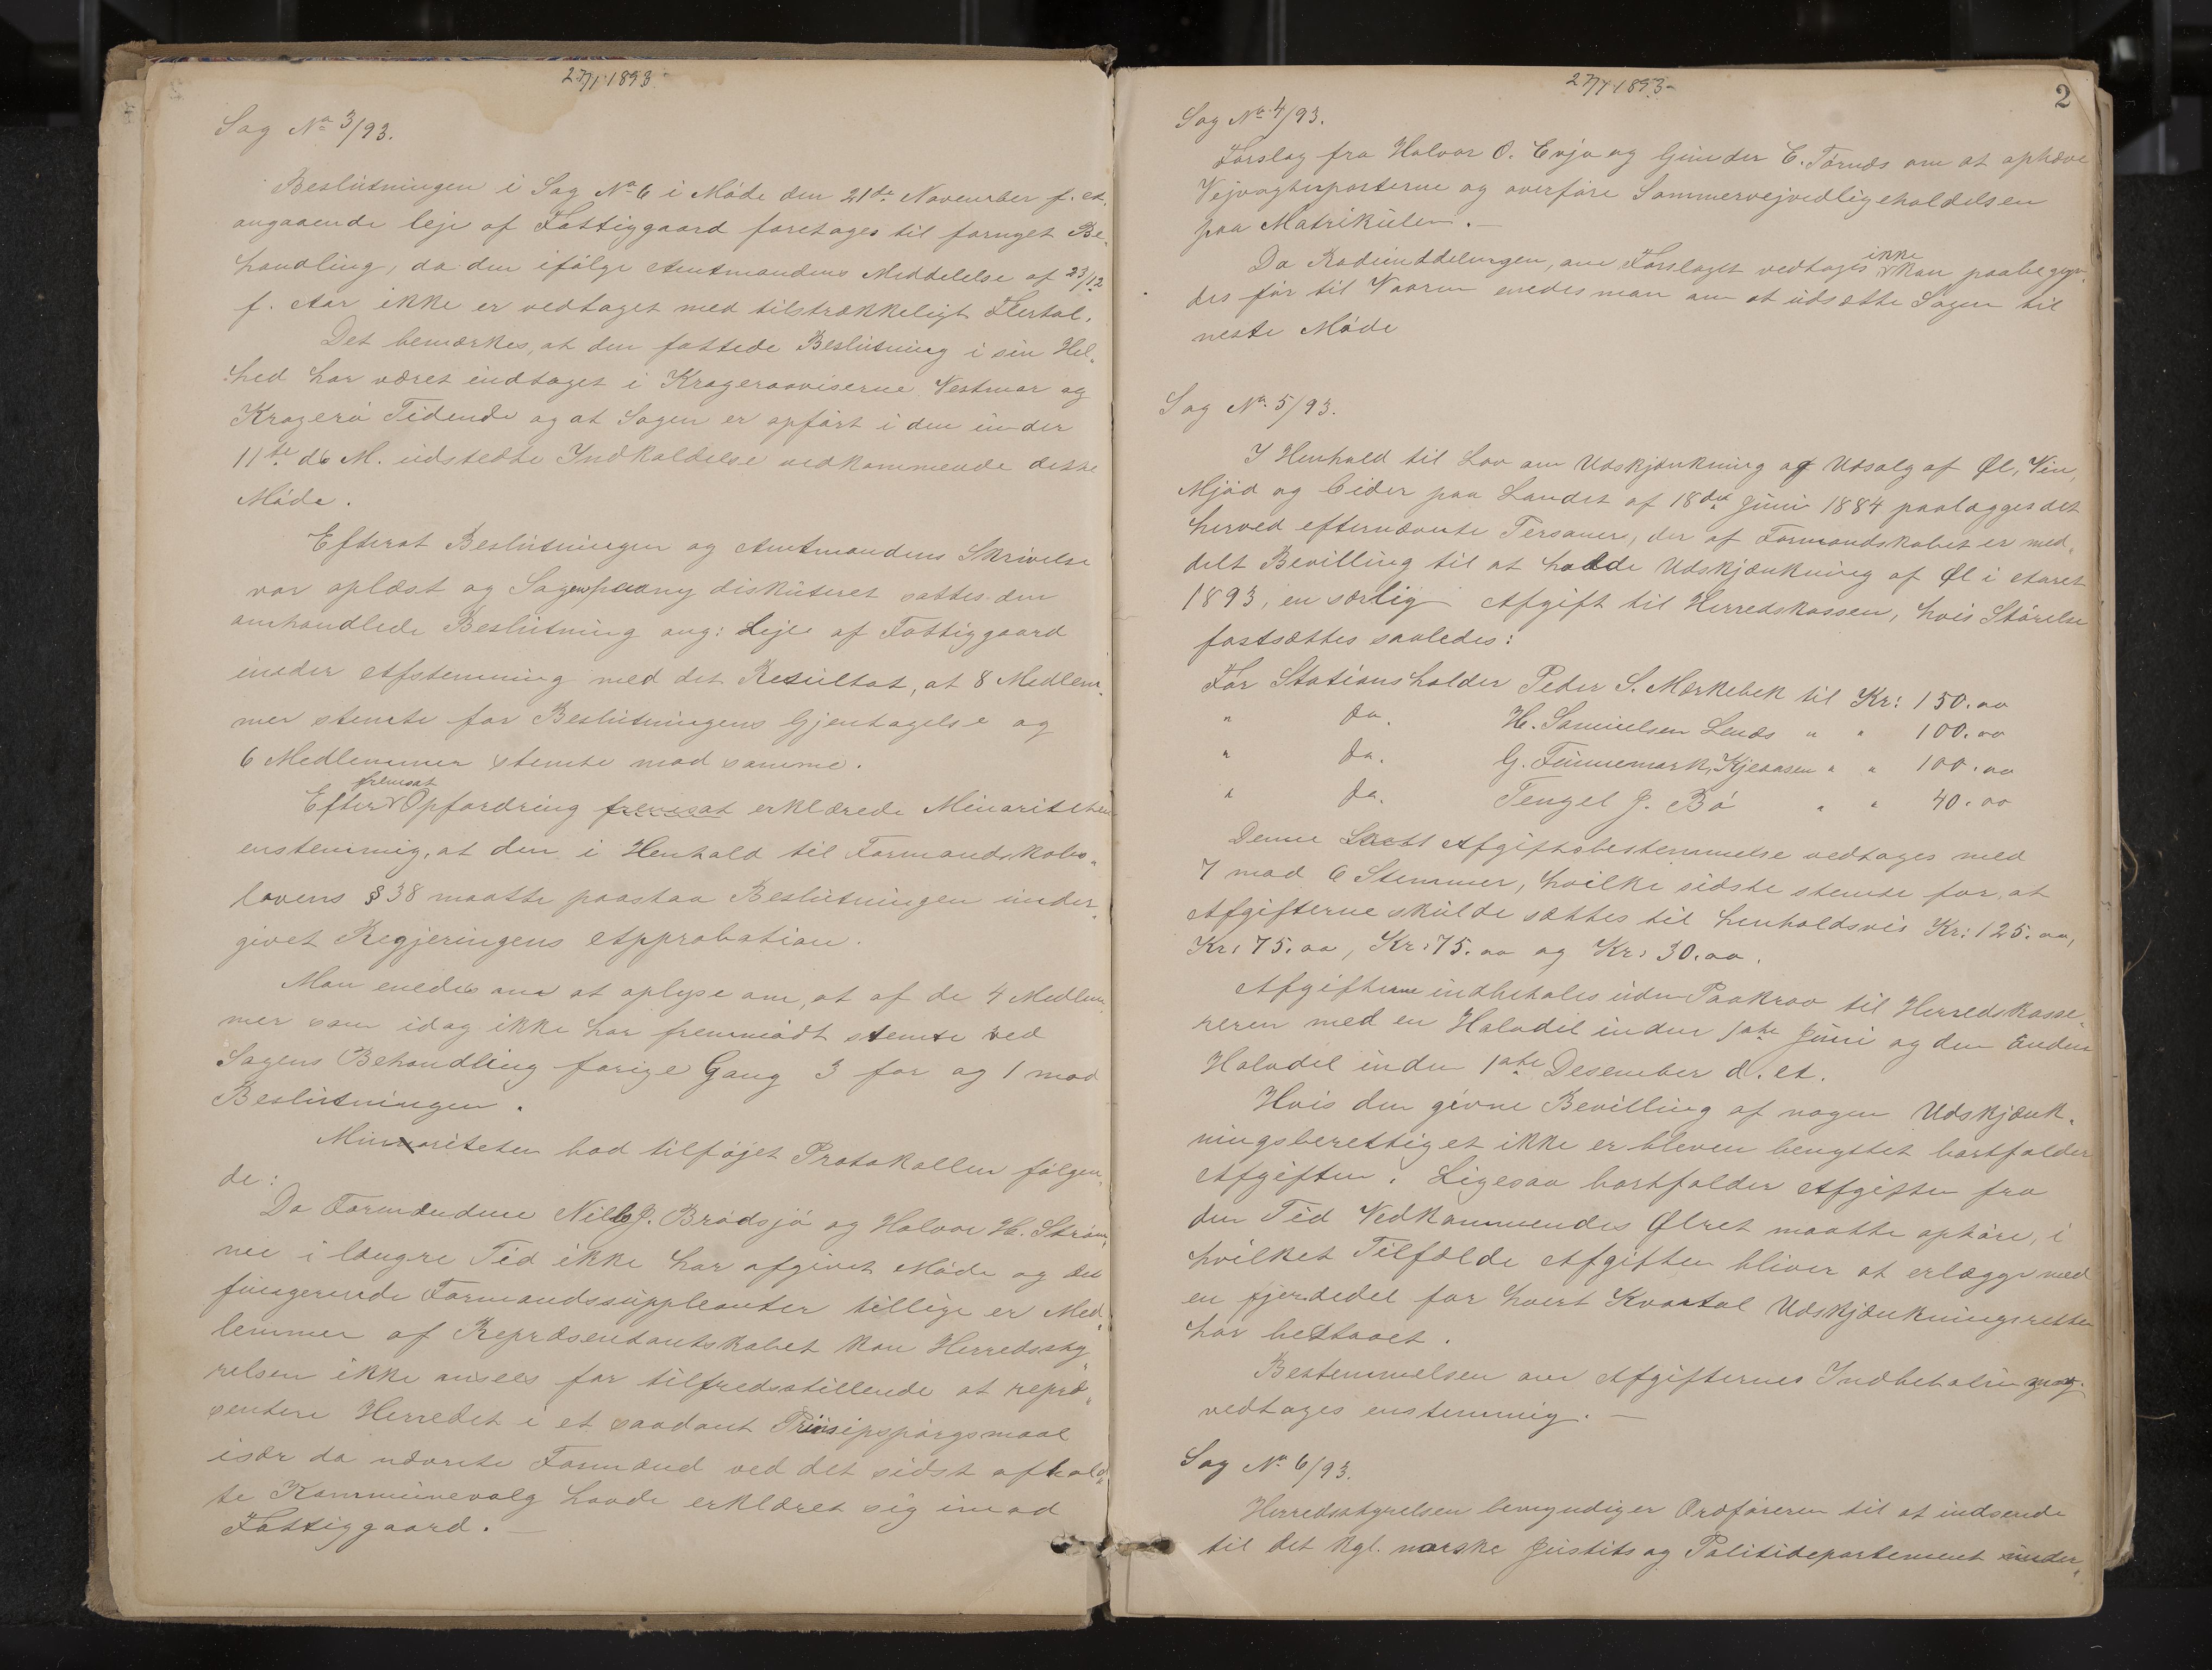 27/1 1893
Sag No 3/93.
Beslutningen i Sag No 6 i Møde den 21de November f. A.
angaaende leje af Fattiggaard foretages til fornyet Be„
handling, da den ifølge Amtmandens Meddelelse af 23/12
f. Aar ikke er vedtaget med tilstrækkeligt Flertal.
Det bemærkes, at den fattede Beslutning i sin Hel„
hed har været indtaget i Krageraaviserne Vestmar og
Kragerø Tidende og at Sagen er opført i den under
11te ds M. udstedte Indkaldelse vedkommende dette
Møde.
Efterat Beslutningen og Amtmandens Skrivelse
var oplæst og Sagen paany diskuteret sattes den
omhandlede Beslutning ang: Leje af Fattiggaard
under Afstemning med det Resultat, at 8 Medlem„
mer stemte for Beslutningens Gjentagelse og
6 Medlemmer stemte mod samme.
fremsat
Efter Opfordring fremsat erklærede Minoriteten
enstemmig, at den i Henhold til Formandskabs„
lovens § 38 maatte paastaa Beslutningen under„
givet Regjeringens Approbation.
Man enedes om at oplyse om, at af de 4 Medlem„
mer som idag ikke har fremmødt stemte ved
Sagens Behandling forige Gang 3 for og 1 mod
Beslutningen.
Minoriteten bad tilføjet Protokollen følgen„
de:
Da Formændene Nils J. Brødsjø og Halvor H. Strøm„
me i længre Tid ikke har afgivet Møde og de
fungerende Formandssuppleanter tillige er Med„
lemmer af Repræsentantskabet kan Herredssty„
relsen ikke ansees for tilfredsstillende at repræ„
sentere Herredet i et saadant Prinsipspørgsmaal
især da nævnte Formænd ved det sidst afhold„
te Kommunevalg havde erklæret sig imod
Fattiggaard. —
27/1 1893-
2
Sag No 4/93.
Forslag fra Halvor O. Evja og Gunder C. Førnæs om at ophæve
Vejvogterposterne og overføre Sommervejvedligeholdelsen
paa Matrikulen. —
ikke
Da Rodeinddelingen, om Forslaget vedtages kan paabegyn„
des før til Vaaren enedes man om at udsætte Sagen til
neste Møde
Sag No 5/93.
I Henhold til Lov om Udskjænkning og Udsalg af Øl, Vin,
Mjød og Cider paa Landet af 18de Juni 1884 paalægges det
herved efternævnte Personer, der af Formandskabet er med„
delt Bevilling til at holde Udskjænkning af Øl i Aaret
1893, en særlig Afgift til Herredskassen, hvis Størelse
fastsættes saaledes:
For Stationsholder Peder S. Mærkebek til Kr: 150.00
" Do. H. Samuelsen Lenæs " " 100.00
" Do. G. Finnemark, Kjeaasen " " 100.00
" Do. Tengel J. Bø " " 40.00
Denne Afgiftsbestemmelse vedtages med
7 mod 6 Stemmer, hvilke sidste stemte for, at
Afgifterne skulde sættes til henholdsvis Kr: 125.00,
Kr: 75.00, Kr: 75.00 og Kr: 30.00.
Afgifterne indbetales uden Paakrav til Herredskasse„
reren med en Halvdel inden 1ste Juni og den Anden
Halvdel inden 1ste Desember d. A.
Hvis den givne Bevilling af nogen Udskjænk„
ningsberettiget ikke er bleven benyttet bortfalder
Afgiften. Ligesaa bortfalder Afgiften fra
den Tid Vedkommendes Ølret maatte ophøre, i
hvilket Tilfælde Afgiften bliver at erlægge med
en fjerdedel for hvert Kvartal Udskjænkningsretten
har bestaaet.
Bestemmelsen om Afgifternes Indbetaling
vedtages enstemmig. —
Sag No 6/93.
Herredsstyrelsen bemyndiger Ordføreren til at indsende
til det kgl. norske Justits og Politidepartement under„